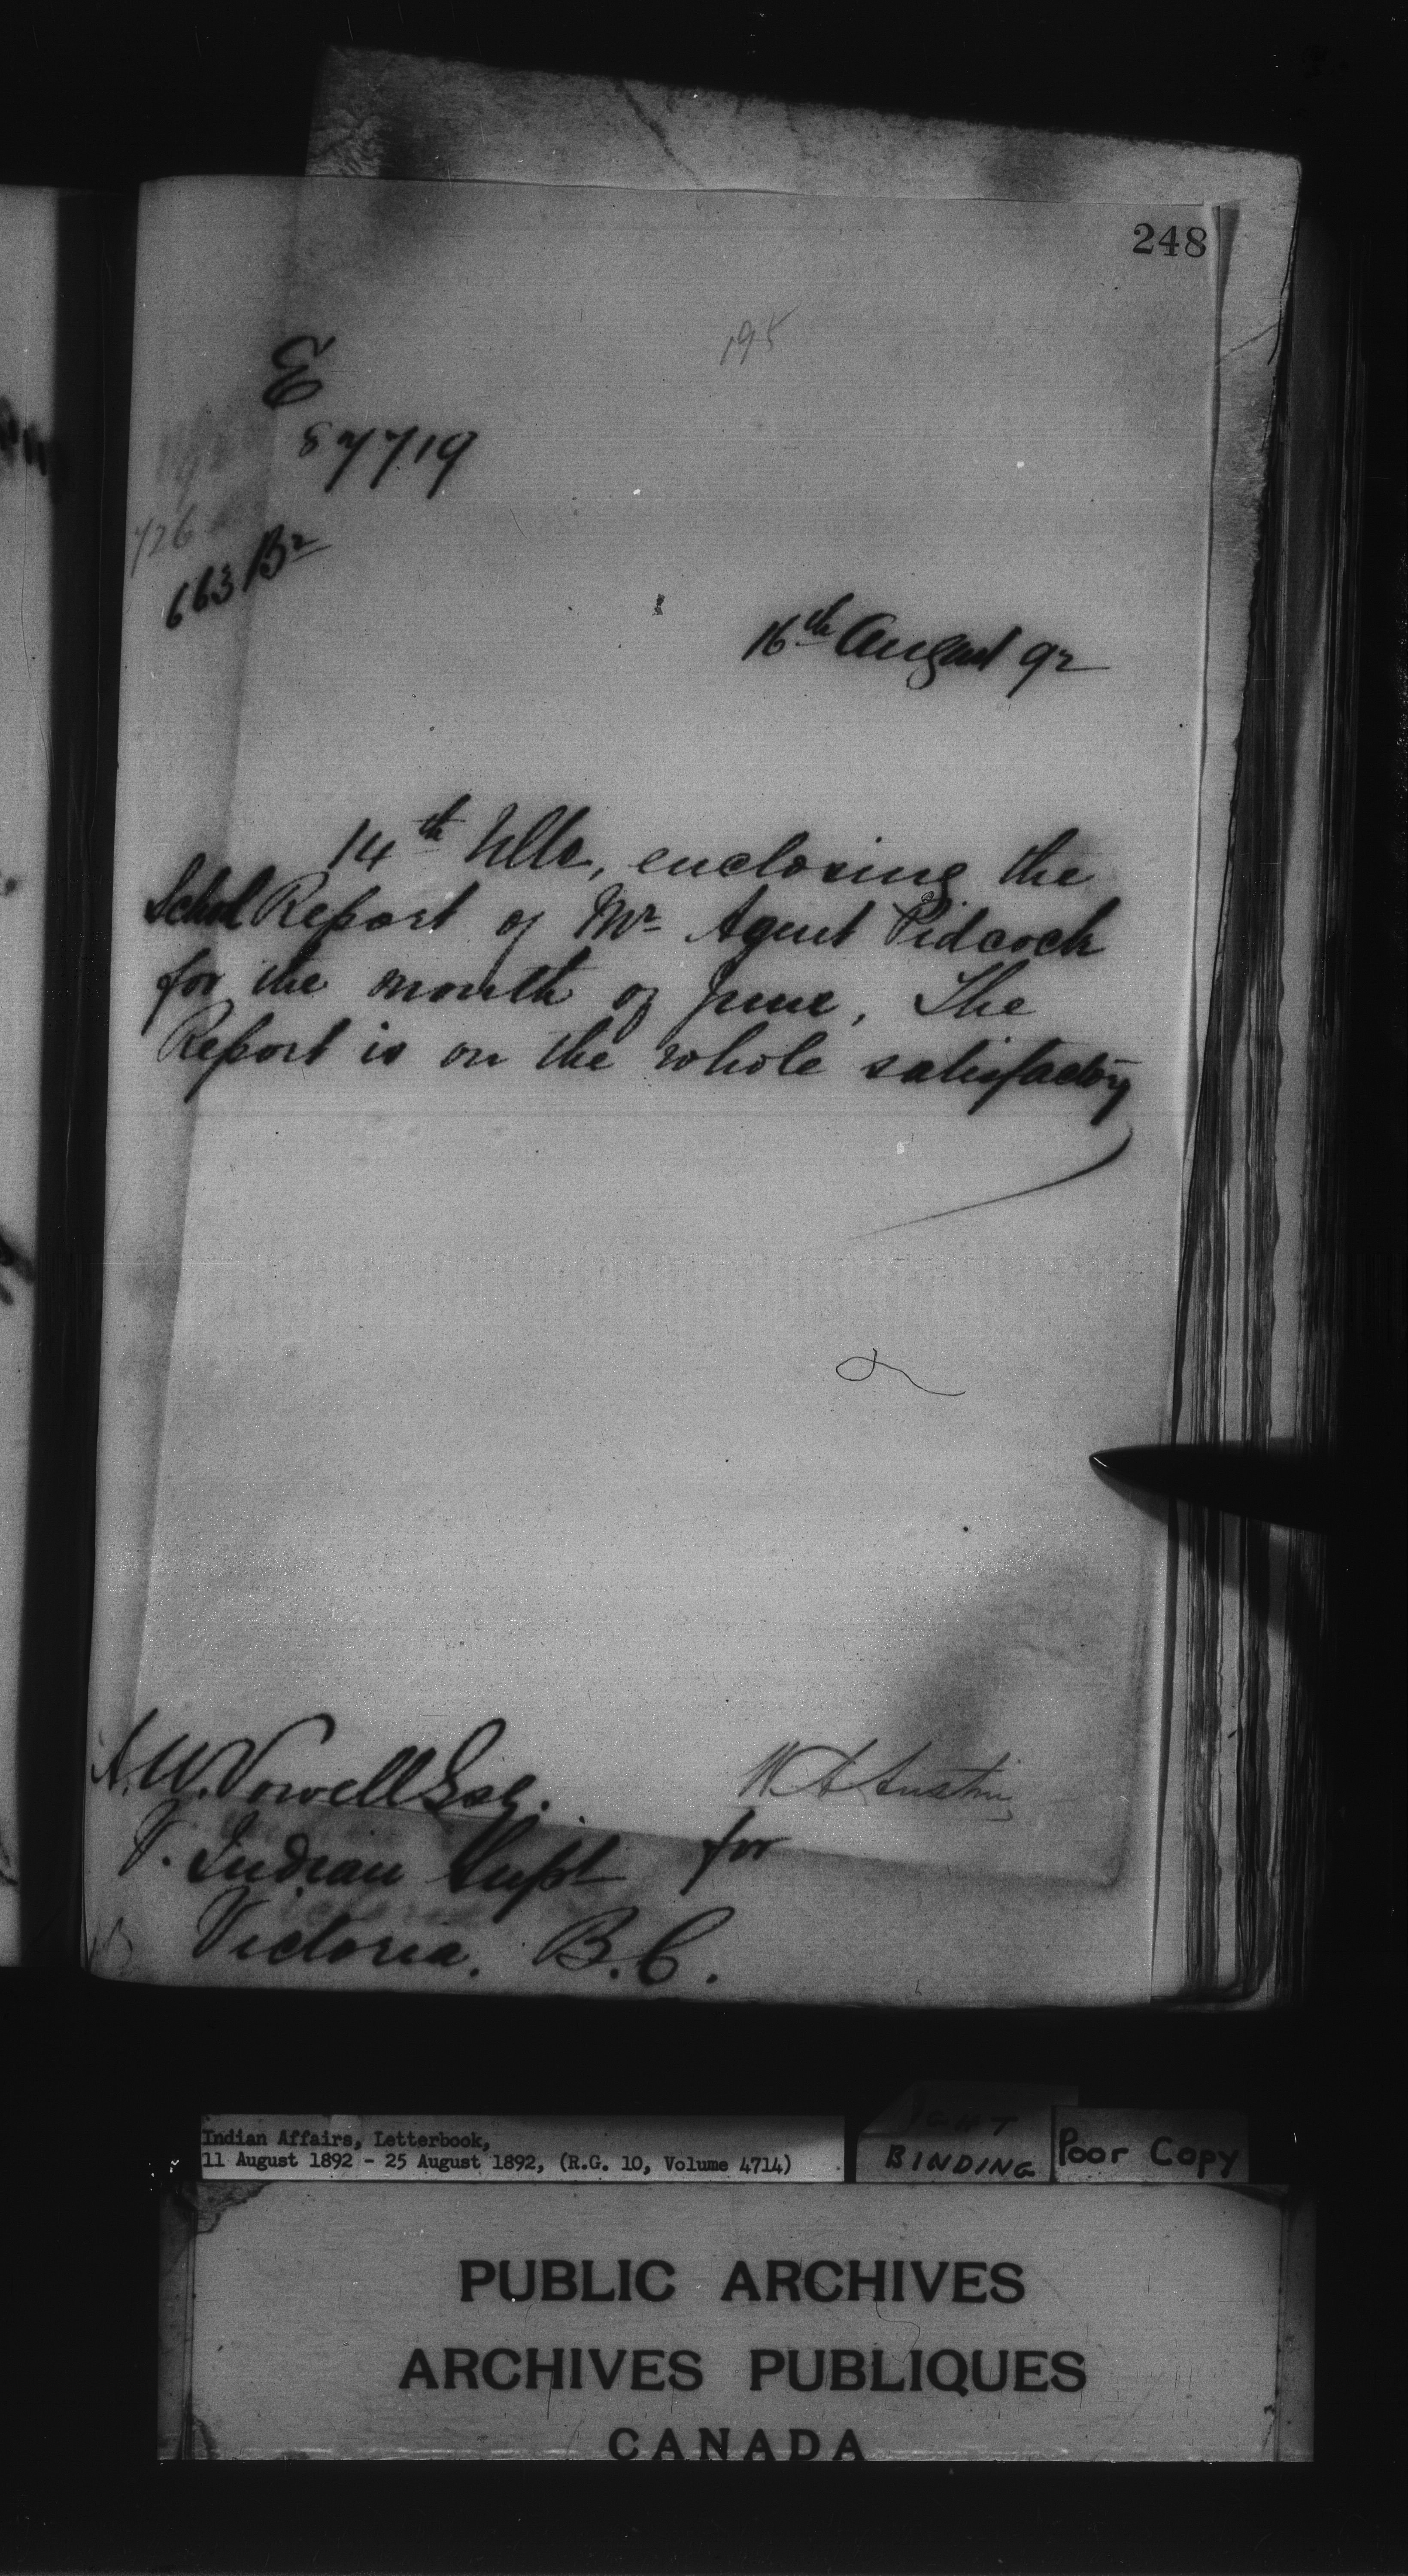 248
195
E
87719
726
663 Br
16th August 92
14th Ulto, enclosing the
School Report of Mr Agent Pidcock
for the month of June, The
Report is on the whole satisfactory
A. W. Vowell Esq.
W A Austin
for
V. Indian Supt
Victoria. B.C.
Indian Affairs, Letterbook,
11 August 1892 - 25 August 1892, (R.G. 10, Volume 4714)
BINDING
Poor Copy
PUBLIC ARCHIVES
ARCHIVES PUBLIQUES
CANADA